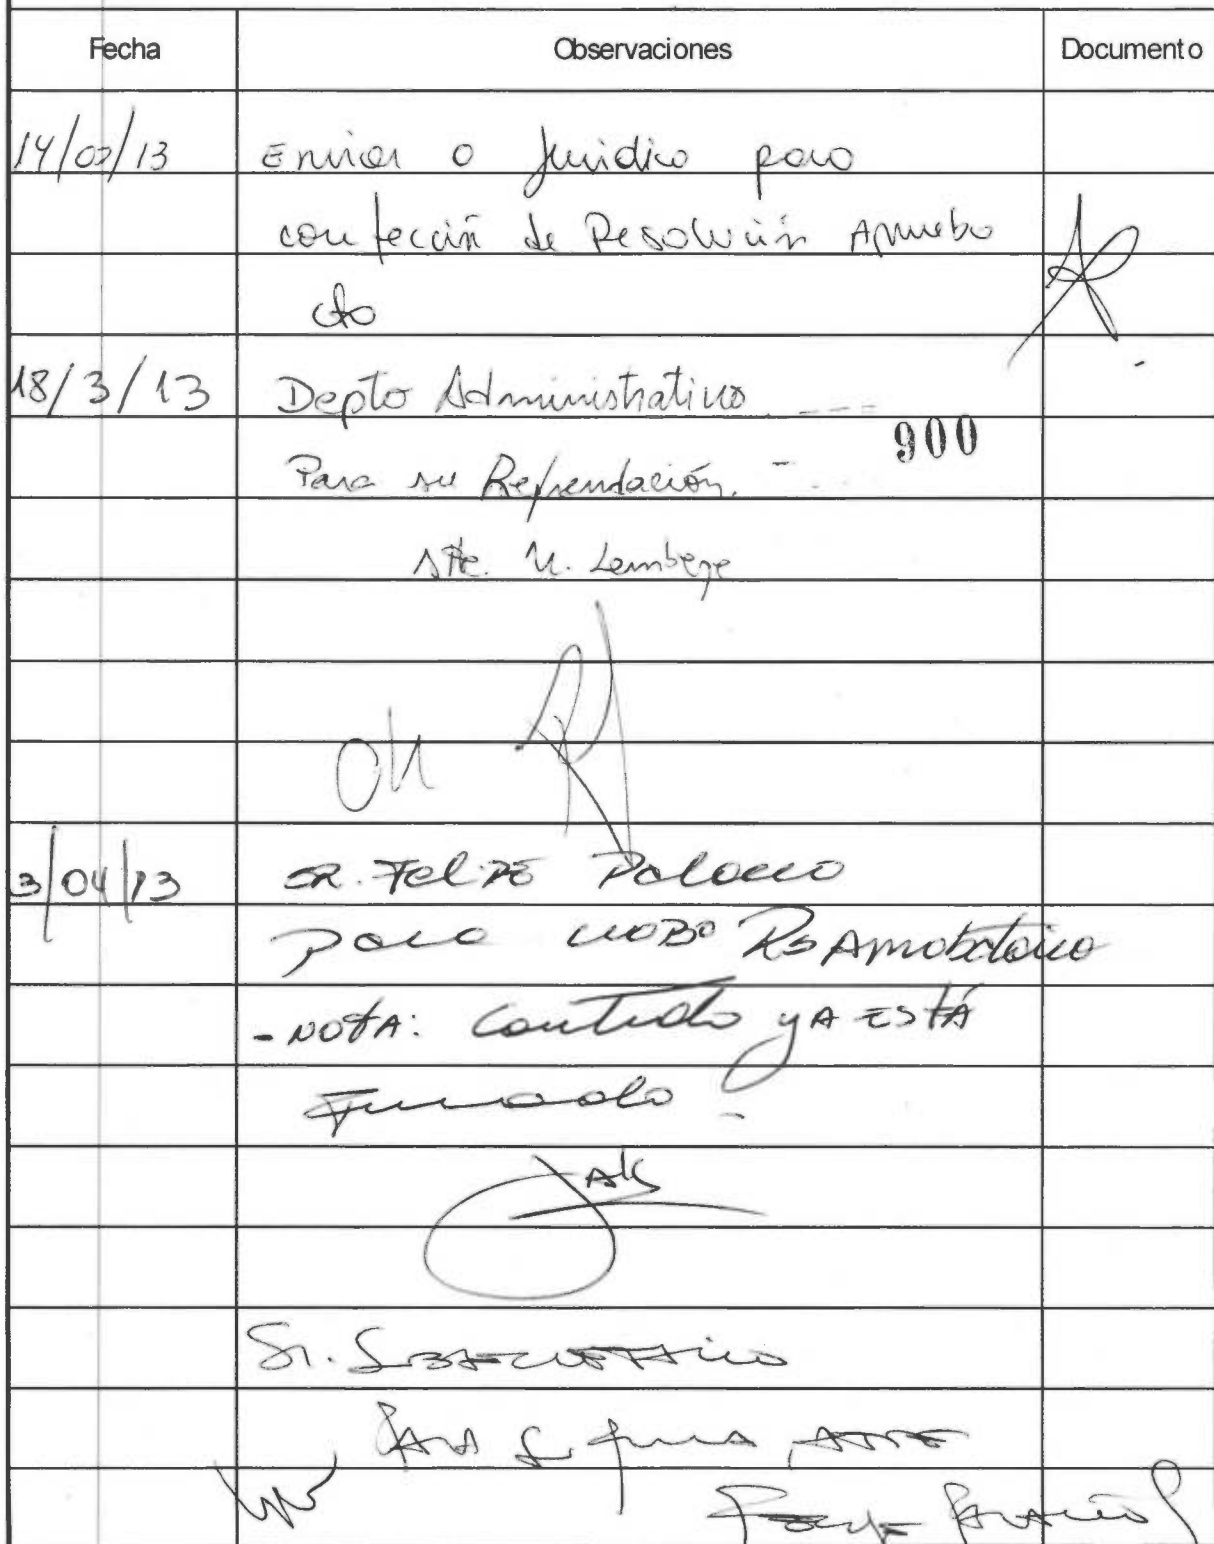 Fecha Observaciones Documento
14/02/13 Enviar a Jurídico para
confección de Resolución Aprueba
cto
18/3/13 Depto Administrativo
900
Para su Refrendación.
Ate. M.
OK
3/04/13 SR. Felipe Palacio
para Rs Aprobatoria
- NOTA: Contrato yA ESTÁ
Firmado
Sr.
PARA firma